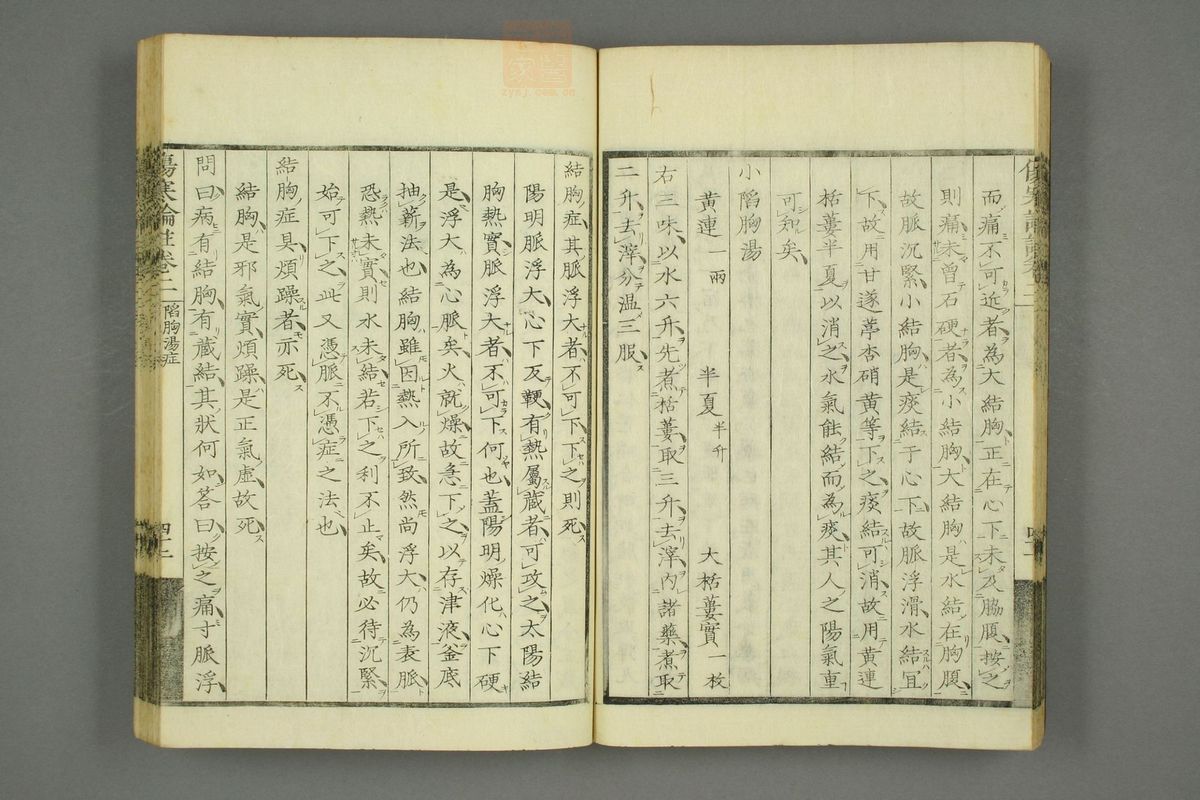 而痛不可近者為大結胸正在心下未及脇腹按之
則痛未曾石硬者為小結胸大結胸是水結在胸腹
故脈沉緊小結胸是痰結于心下故脈浮滑水結宜
下故用甘遂葶杏硝黃等下之痰結可消故用黃連
栝蔞半夏以消之水氣能結而為痰其人之陽氣重
可知矣
小陷胸湯
黃連一兩　半夏半升　大栝蔞實一枚
右三味以水六升先煮栝蔞取三升去滓內諸藥煮取
二升去滓分温三服
結胸症其脈浮大者不可下下之則死
陽明脈浮大心下反鞕有熱屬藏者可攻之太陽結
胸熱實脈浮大者不可下何也蓋陽明燥化心下硬
是浮大為心脈矣火就燥故急下之以存津液釜底
抽薪法也結胸雖因熱入所致然尚浮大仍為表脈
恐熱未實則水未結若下之利不止矣故必待沉緊
始可下之此又憑脈不憑症之法也
結胸症具煩躁者亦死
結胸是邪氣實煩躁是正氣虛故死
問曰病有結胸有藏結其狀何如答曰按之痛寸脈浮
傷寒論註卷二　陷胸湯症
zysj.com.cn